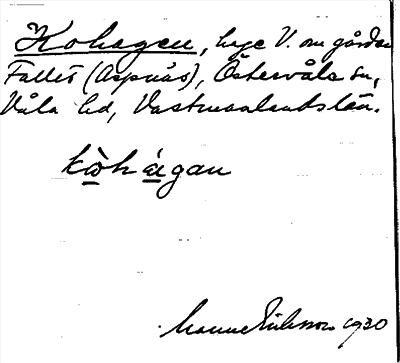 Kohagen, hage V. om gården
Fallet (Aspnäs), Östervåla sn,
Våla hd, Västmanlands län.
kòhágan
Manne Eriksson 1930